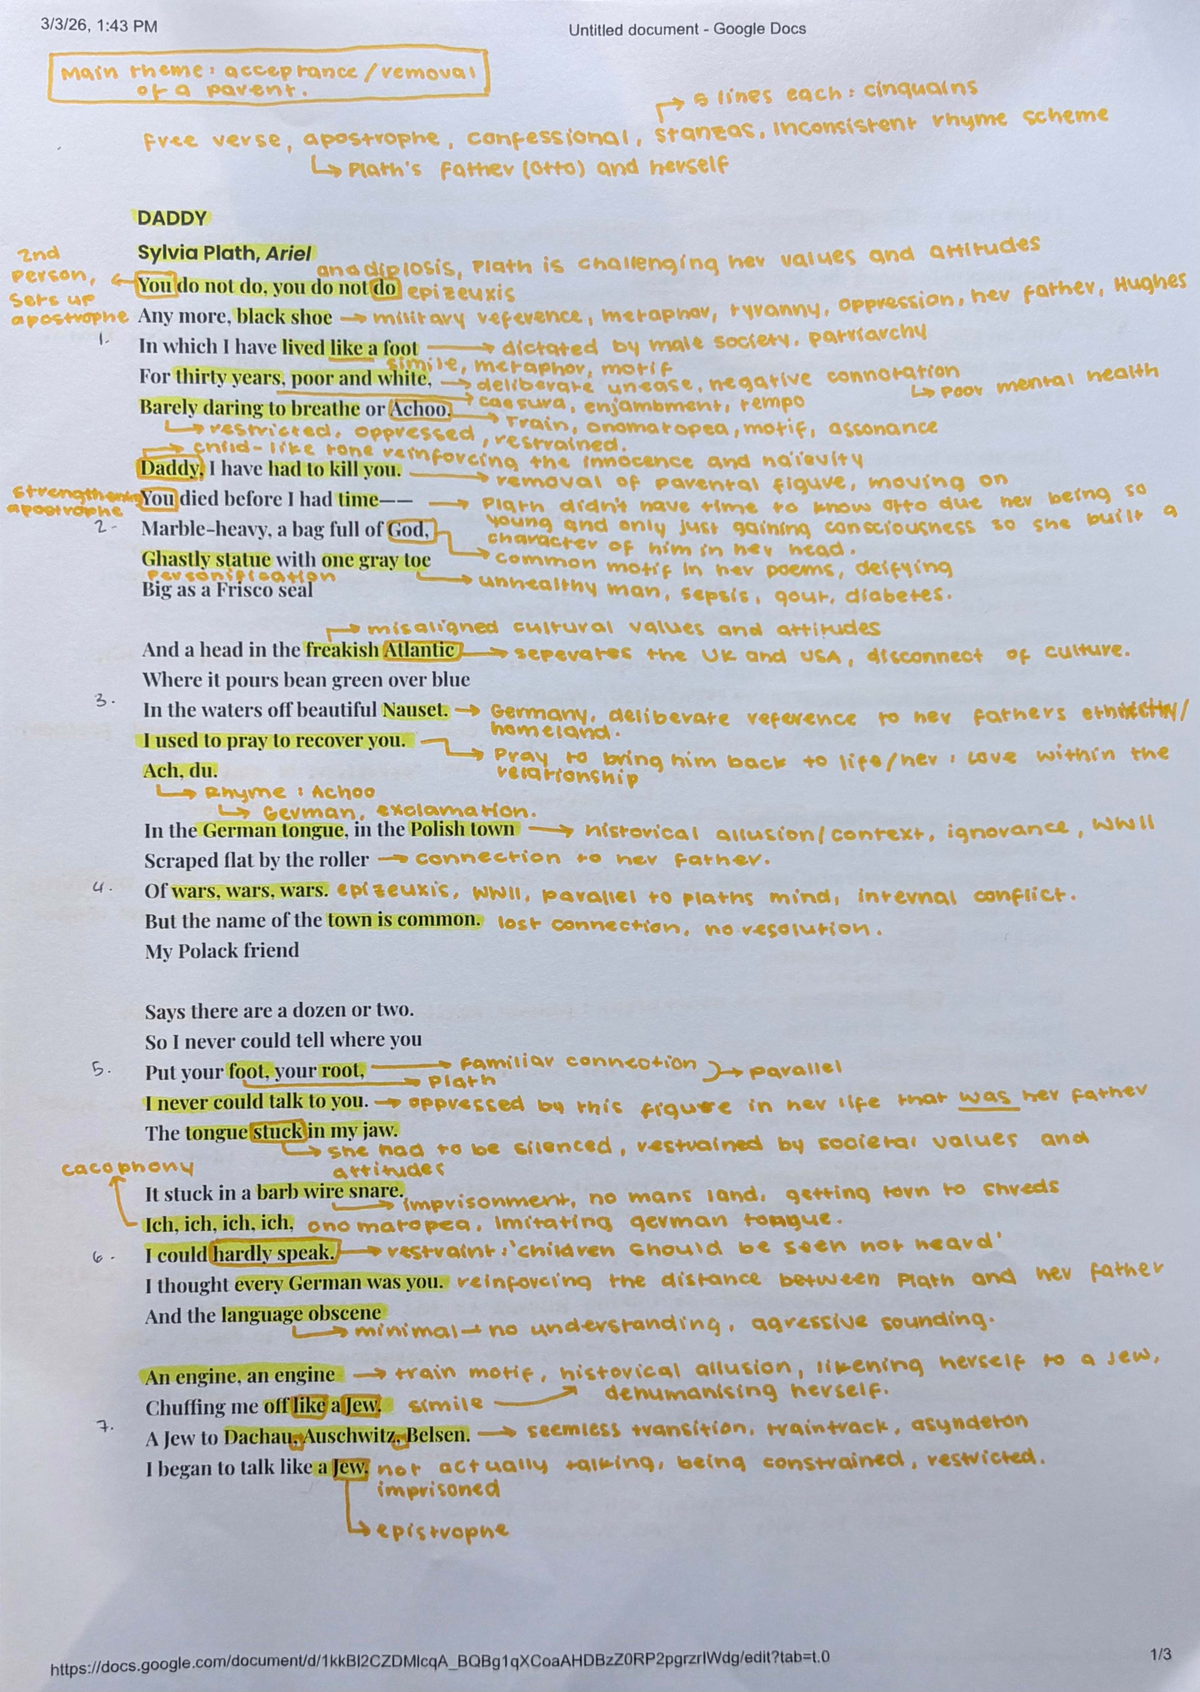 3/3/26, 1:43 PM
Untitled document - Google Docs
Main theme: acceptance/removal
of a parent.
→ 5 lines each: cinquains
free verse, apostrophe, confessional, stanzas, inconsistent rhyme scheme
↳ Plath's father (Otto) and herself
DADDY
Sylvia Plath, Ariel
2nd
person,
sets up
apostrophe
anadiplosis, Plath is challenging her values and attitudes
You do not do, you do not do epizeuxis
Any more, black shoe → military reference, metaphor, tyranny, oppression, her father, Hughes
1.
In which I have lived like a foot → dictated by male society, patriarchy
simile, metaphor, motif
For thirty years, poor and white, → deliberate unease, negative connotation
↳ poor mental health
→ caesura, enjambment, tempo
Barely daring to breathe or Achoo. → Train, onomatopea, motif, assonance
↳ restricted, oppressed, restrained.
→ child-like tone reinforcing the innocence and naievity
Daddy, I have had to kill you. → removal of parental figure, moving on
strengthens
apostrophe
You died before I had time—— → Plath didn't have time to know Otto due her being so
young and only just gaining consciousness so she built a
character of him in her head.
2.
Marble-heavy, a bag full of God,
↳ common motif in her poems, deifying
Ghastly statue with one gray toe
personification
→ unhealthy man, sepsis, gout, diabetes.
Big as a Frisco seal
→ misaligned cultural values and attitudes
And a head in the freakish Atlantic → seperates the UK and USA, disconnect of culture.
Where it pours bean green over blue
3.
In the waters off beautiful Nauset. → Germany, deliberate reference to her fathers ethnicity/
homeland.
I used to pray to recover you.
↳ Pray to bring him back to life/her : love within the
relationship
Ach, du.
↳ Rhyme : Achoo
↳ German, exclamation.
In the German tongue, in the Polish town → historical allusion/context, ignorance, WWII
Scraped flat by the roller → connection to her father.
4.
Of wars, wars, wars. epizeuxis, WWII, parallel to plaths mind, internal conflict.
But the name of the town is common. lost connection, no resolution.
My Polack friend
Says there are a dozen or two.
So I never could tell where you
5.
Put your foot, your root, → familiar connection → parallel
→ Plath
I never could talk to you. → oppressed by this figure in her life that was her father
The tongue stuck in my jaw.
↳ she had to be silenced, restrained by societal values and
attitudes
cacophony
It stuck in a barb wire snare.
↳ imprisonment, no mans land, getting torn to shreds
Ich, ich, ich, ich, onomatopea, imitating german tongue.
6.
I could hardly speak. → restraint: 'children should be seen not heard'
I thought every German was you. reinforcing the distance between Plath and her father
And the language obscene
↳ minimal → no understanding, agressive sounding.
An engine, an engine → train motif, historical allusion, likening herself to a Jew,
dehumanising herself.
Chuffing me off like a Jew. simile
7.
A Jew to Dachau, Auschwitz, Belsen. → seemless transition, traintrack, asyndeton
I began to talk like a Jew. not actually talking, being constrained, restricted.
imprisoned
↳ epistrophe
https://docs.google.com/document/d/1kkBl2CZDMlcqA_BQBg1qXCoaAHDBzZ0RP2pgrzrlWdg/edit?tab=t.0
1/3